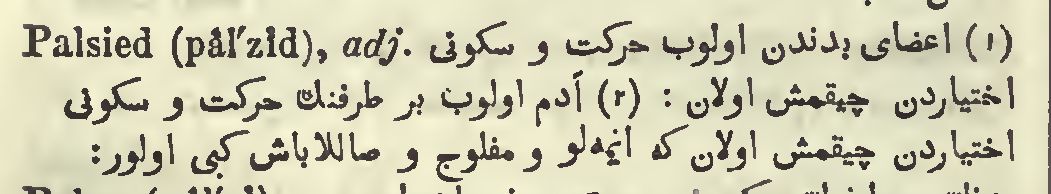 Palsied (pâl′zĭd), adj. (١) اعضاى بدندن اولوب حركت و سكونى
اختياردن چيقمش اولان : (٢) آدم اولوب بر طرفنڭ حركت و سكونى
اختياردن چيقمش اولان كه اينمه‌لو و مفلوج و صاللاباش كبى اولور: